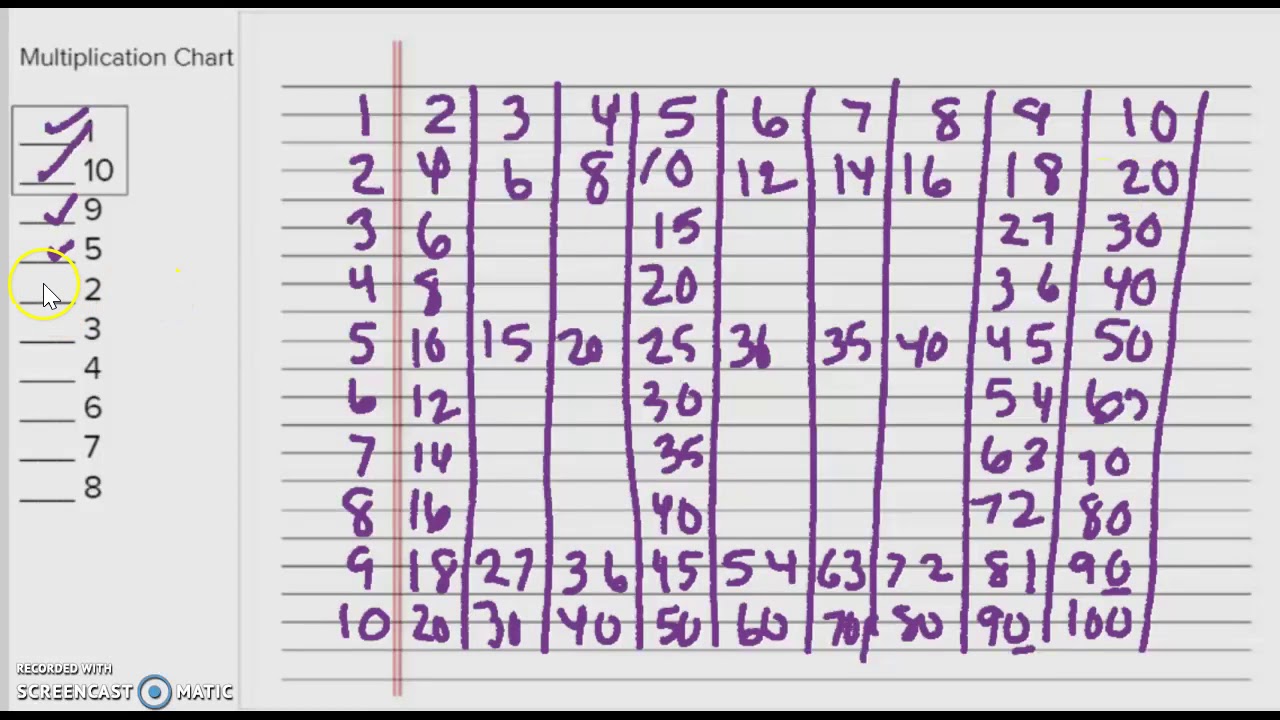 Multiplication Chart
1
10
9
5
2
3
4
6
7
8
1 2 3 4 5 6 7 8 9 10
2 4 6 8 10 12 14 16 18 20
3 6 15 27 30
4 8 20 36 40
5 10 15 20 25 30 35 40 45 50
6 12 30 54 60
7 14 35 63 70
8 16 40 72 80
9 18 27 36 45 54 63 72 81 90
10 20 30 40 50 60 70 80 90 100
RECORDED WITH
SCREENCAST MATIC